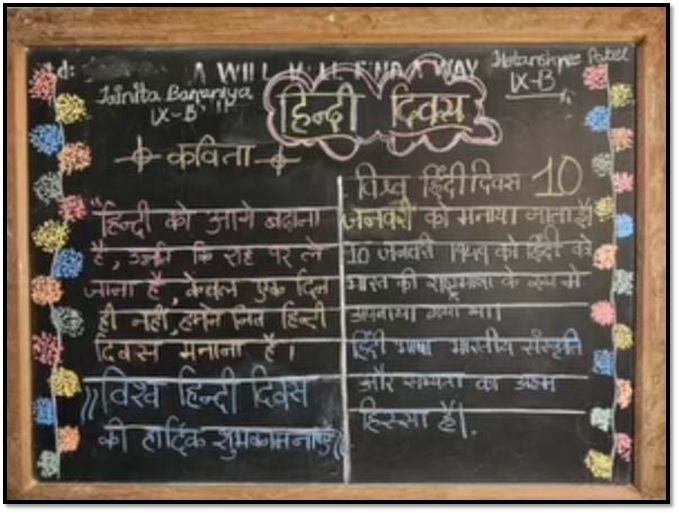 A WILL WILL FIND A WAY
Jainita Bananiya
IX-B
Patel
IX-B
हिन्दी दिवस
कविता
"हिन्दी को आगे बढ़ाना
है, उन्नति कि राह पर ले
जाना है, केवल एक दिन
ही नहीं, हमने नित हिन्दी
दिवस मनाना है।
विश्व हिन्दी दिवस
की हार्दिक शुभकामनाएँ
विश्व हिंदी दिवस 10
जनवरी को मनाया जाता है
10 जनवरी १९४९ को हिंदी को
भारत की राष्ट्रभाषा के रूप मे
अपनाया गया था।
हिंदी भाषा भारतीय संस्कृति
और सभ्यता का अहम
हिस्सा है।.